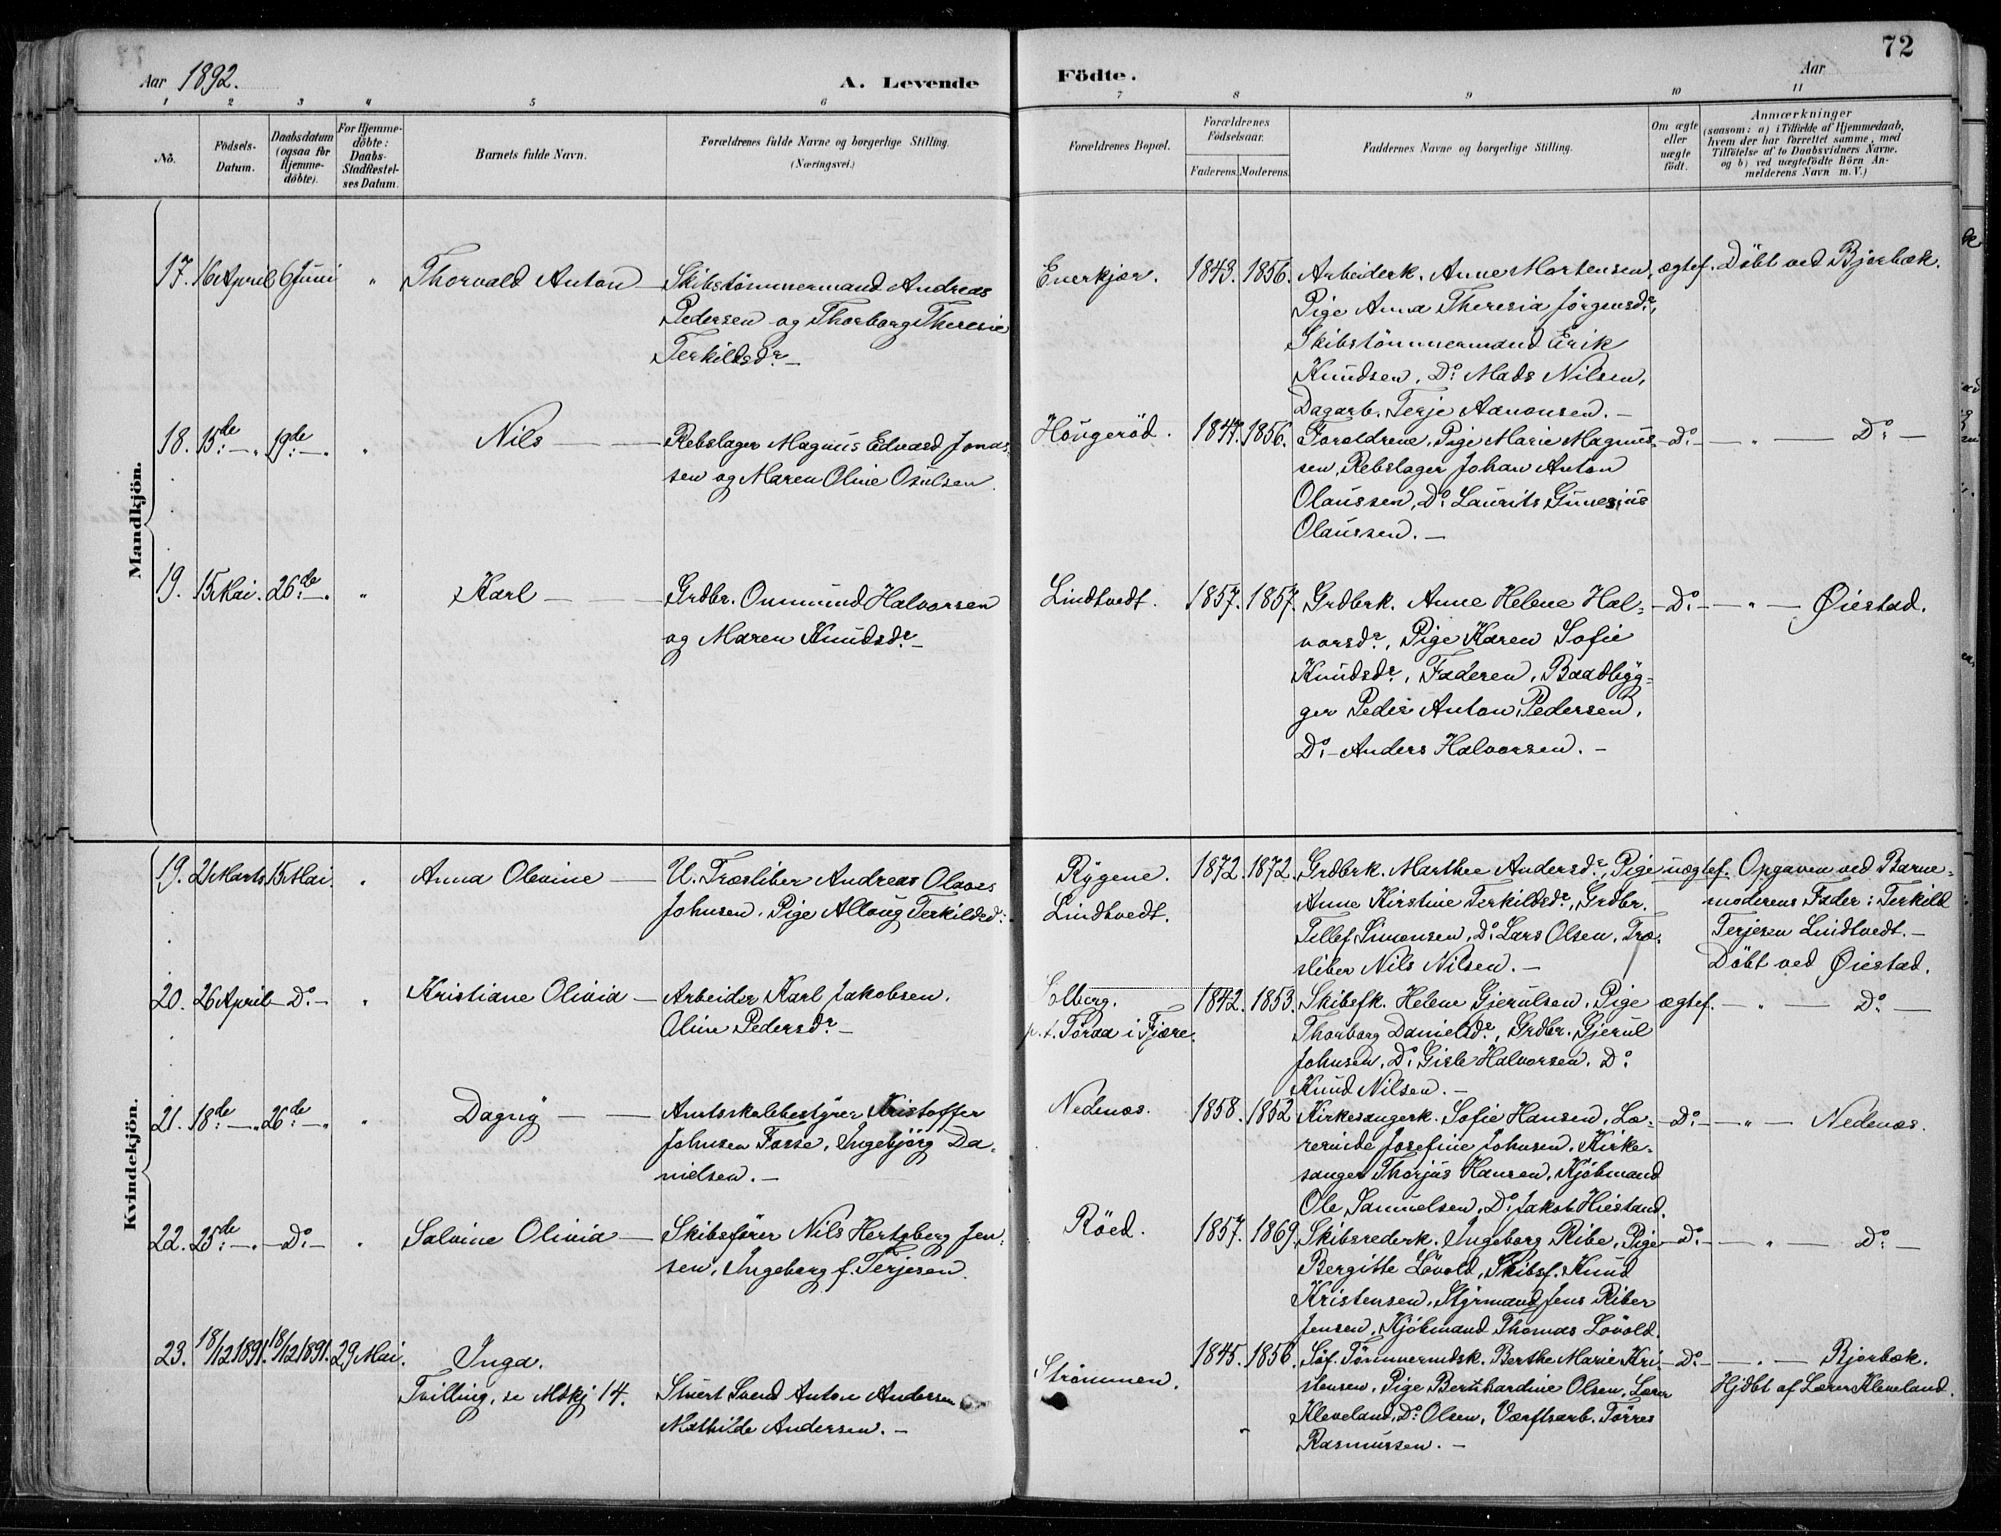 72
Aar 1892.
A. Levende
Födte.
Aar
1 2 3 4 5 6 7 8 9 10 11
No.
Födsels-
Datum.
Daabsdatum
(ogsaa for
Hjemme-
döbte).
For Hjemme-
döbte:
Daabs-
Stadfæstel-
ses Datum.
Barnets fulde Navn.
Forældrenes fulde Navne og borgerlige Stilling.
(Næringsvei.)
Forældrenes Bopæl.
Forældrenes
Födselsaar.
Faderens. Moderens.
Faddernes Navne og borgerlige Stilling.
Om ægte
eller
uægte
födt.
Anmærkninger
(saasom: a) i Tilfælde af Hjemmedaab,
hvem der har forrettet samme, med
Tilföielse af to Daabsvidners Navne.
og b) ved uægtefödte Börn An-
melderens Navn m.V.)
Mandkjön.
17. 16 April 6 Juni " Thorvald Anton
Skibstömmermand Andreas
Pedersen og Thorborg Theresie
Terkildsdr. —
Enerkjær. 1843. 1856.
Arbeiderk. Anne Mortensen,
Pige Anna Theresia Jörgensdr.,
Skibstömmermand Erik
Knudsen, Do. Mads Nilsen,
Dagarb. Terje Aanonsen. —
ægtef. Döbt ved Bjorbæk.
18. 15de —" 19de —" " Nils —
Rebslager Magnus Edvard Jonas-
sen og Maren Oline Osulsen.
Hougeröd. 1847. 1856.
Foraldrene, Pige Marie Magnus-
sen, Rebslager Johan Anton
Olaussen, Do. Laurits Gunerius
Olaussen. —
— Do. — — " — Do. —
19. 15 Mai. 26de —" " Karl —
Grdbr. Onmund Halvorsen
og Maren Knudsdr. —
Lindtvedt. 1857. 1857.
Grdbrk. Anne Helene Hal-
vorsdr., Pige Karen Sofie
Knudsdr., Faderen, Baadbyg-
ger Peder Anton Pedersen,
Do. — Anders Halvorsen. —
— Do. — — " — Öiestad.
Kvindekjön.
19. 21 Marts 15 Mai. " Anna Olevine —
U. Træsliber Andreas Olaves
Johnsen, Pige Alloug Terkildsd.
Rygene.
Lindtvedt.
1872. 1872.
Grdbrk. Marthe Andersdr., Pige
Anne Kirstine Terkildsdr., Grdbr.
Tellef Simonsen, Do. Lars Olsen, Træ-
sliber Nils Nilsen. —
uægtef. Opgaven ved Barne-
moderens Fader: Terkild
Terjesen Lindtvedt. —
Döbt ved Öiestad.
20. 26 April — Do. — " Kristiane Olivia —
Arbeider Karl Jakobsen.
Oline Pedersdr. —
Solberg.
p.t. Toraa i Fjære.
1842. 1853.
Skibsfk. Helene Gjerulsen, Pige
Thorborg Danielsdr., Grdbr. Gjerul
Johnsen, Do. Gisle Halvorsen. Do.
Knud Nilsen. —
ægtef. — " — Do. —
21. 18de —" 26de —" " Dagny —
Amtsskolebestyrer Kristoffer
Johnsen Fosse, Ingebjörg Da-
nielsen. —
Nedenæs. 1858. 1852
Kirkesangerk. Sofie Hansen, Læ-
rerinde Josefine Johnsen, Kirke-
sanger Thorjus Hansen, Kjöbmand
Ole Samuelsen, Do. Jakob Hiestand.
— Do. — — " — Nedenæs.
22. 25de —" — Do. — " Salvine Olivia —
Skibsförer Nils Hertzberg Jen-
sen, Ingeborg f. Terjesen.
Röed. 1857. 1869.
Skibsrederk. Ingeborg Ribe, Pige
Bergitte Lövold, Skibsf. Knud
Kristensen, Styrmand Jens Riber
Jensen, Kjöbmand Thomas Lövold.
— Do. — — " — Do. —
23. 18/12 1891. 18/12 1891. 29 Mai. Inga.
Tvilling, se Mskj 14.
Stuert Svend Anton Andersen
Mathilde Andersen. —
Strömmen. 1845. 1856.
Söf. Tömmermdsk. Berthe Marie Kri-
stensen, Pige Bernhardine Olsen, Lærer
Kleveland, Do. Olsen, Værftsarb. Törres
Rasmussen. —
— Do. — — " — Bjorbæk.
Hjdbt af Lærer Kleveland.